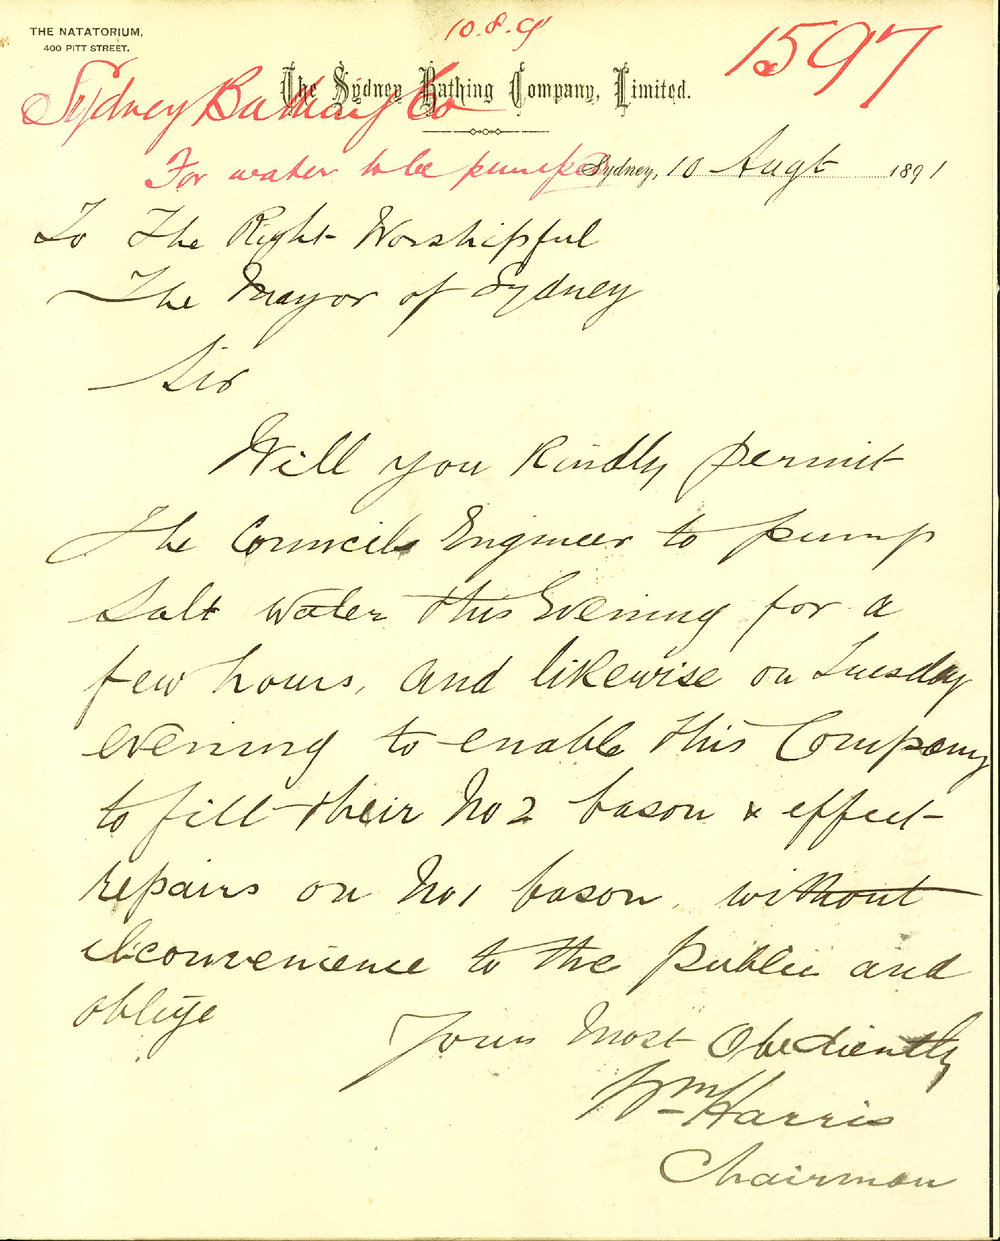 THE NATATORIUM,
400 PITT STREET.
10.8.91
1597
The Sydney Bathing Company, Limited.
Sydney Bathing Co
For water to be pumped
Sydney, 10 Augt 1891
To The Right Worshipful
The Mayor of Sydney
Sir
Will you Kindly permit
The Councils Engineer to pump
Salt water this Evening for a
few hours, and likewise on Tuesday
evening to enable this Company
to fill their No 2 bason & effect
repairs on No 1 bason, without
inconvenience to the public and
oblige
Yours Most Obediently
Wm Harris
Chairman